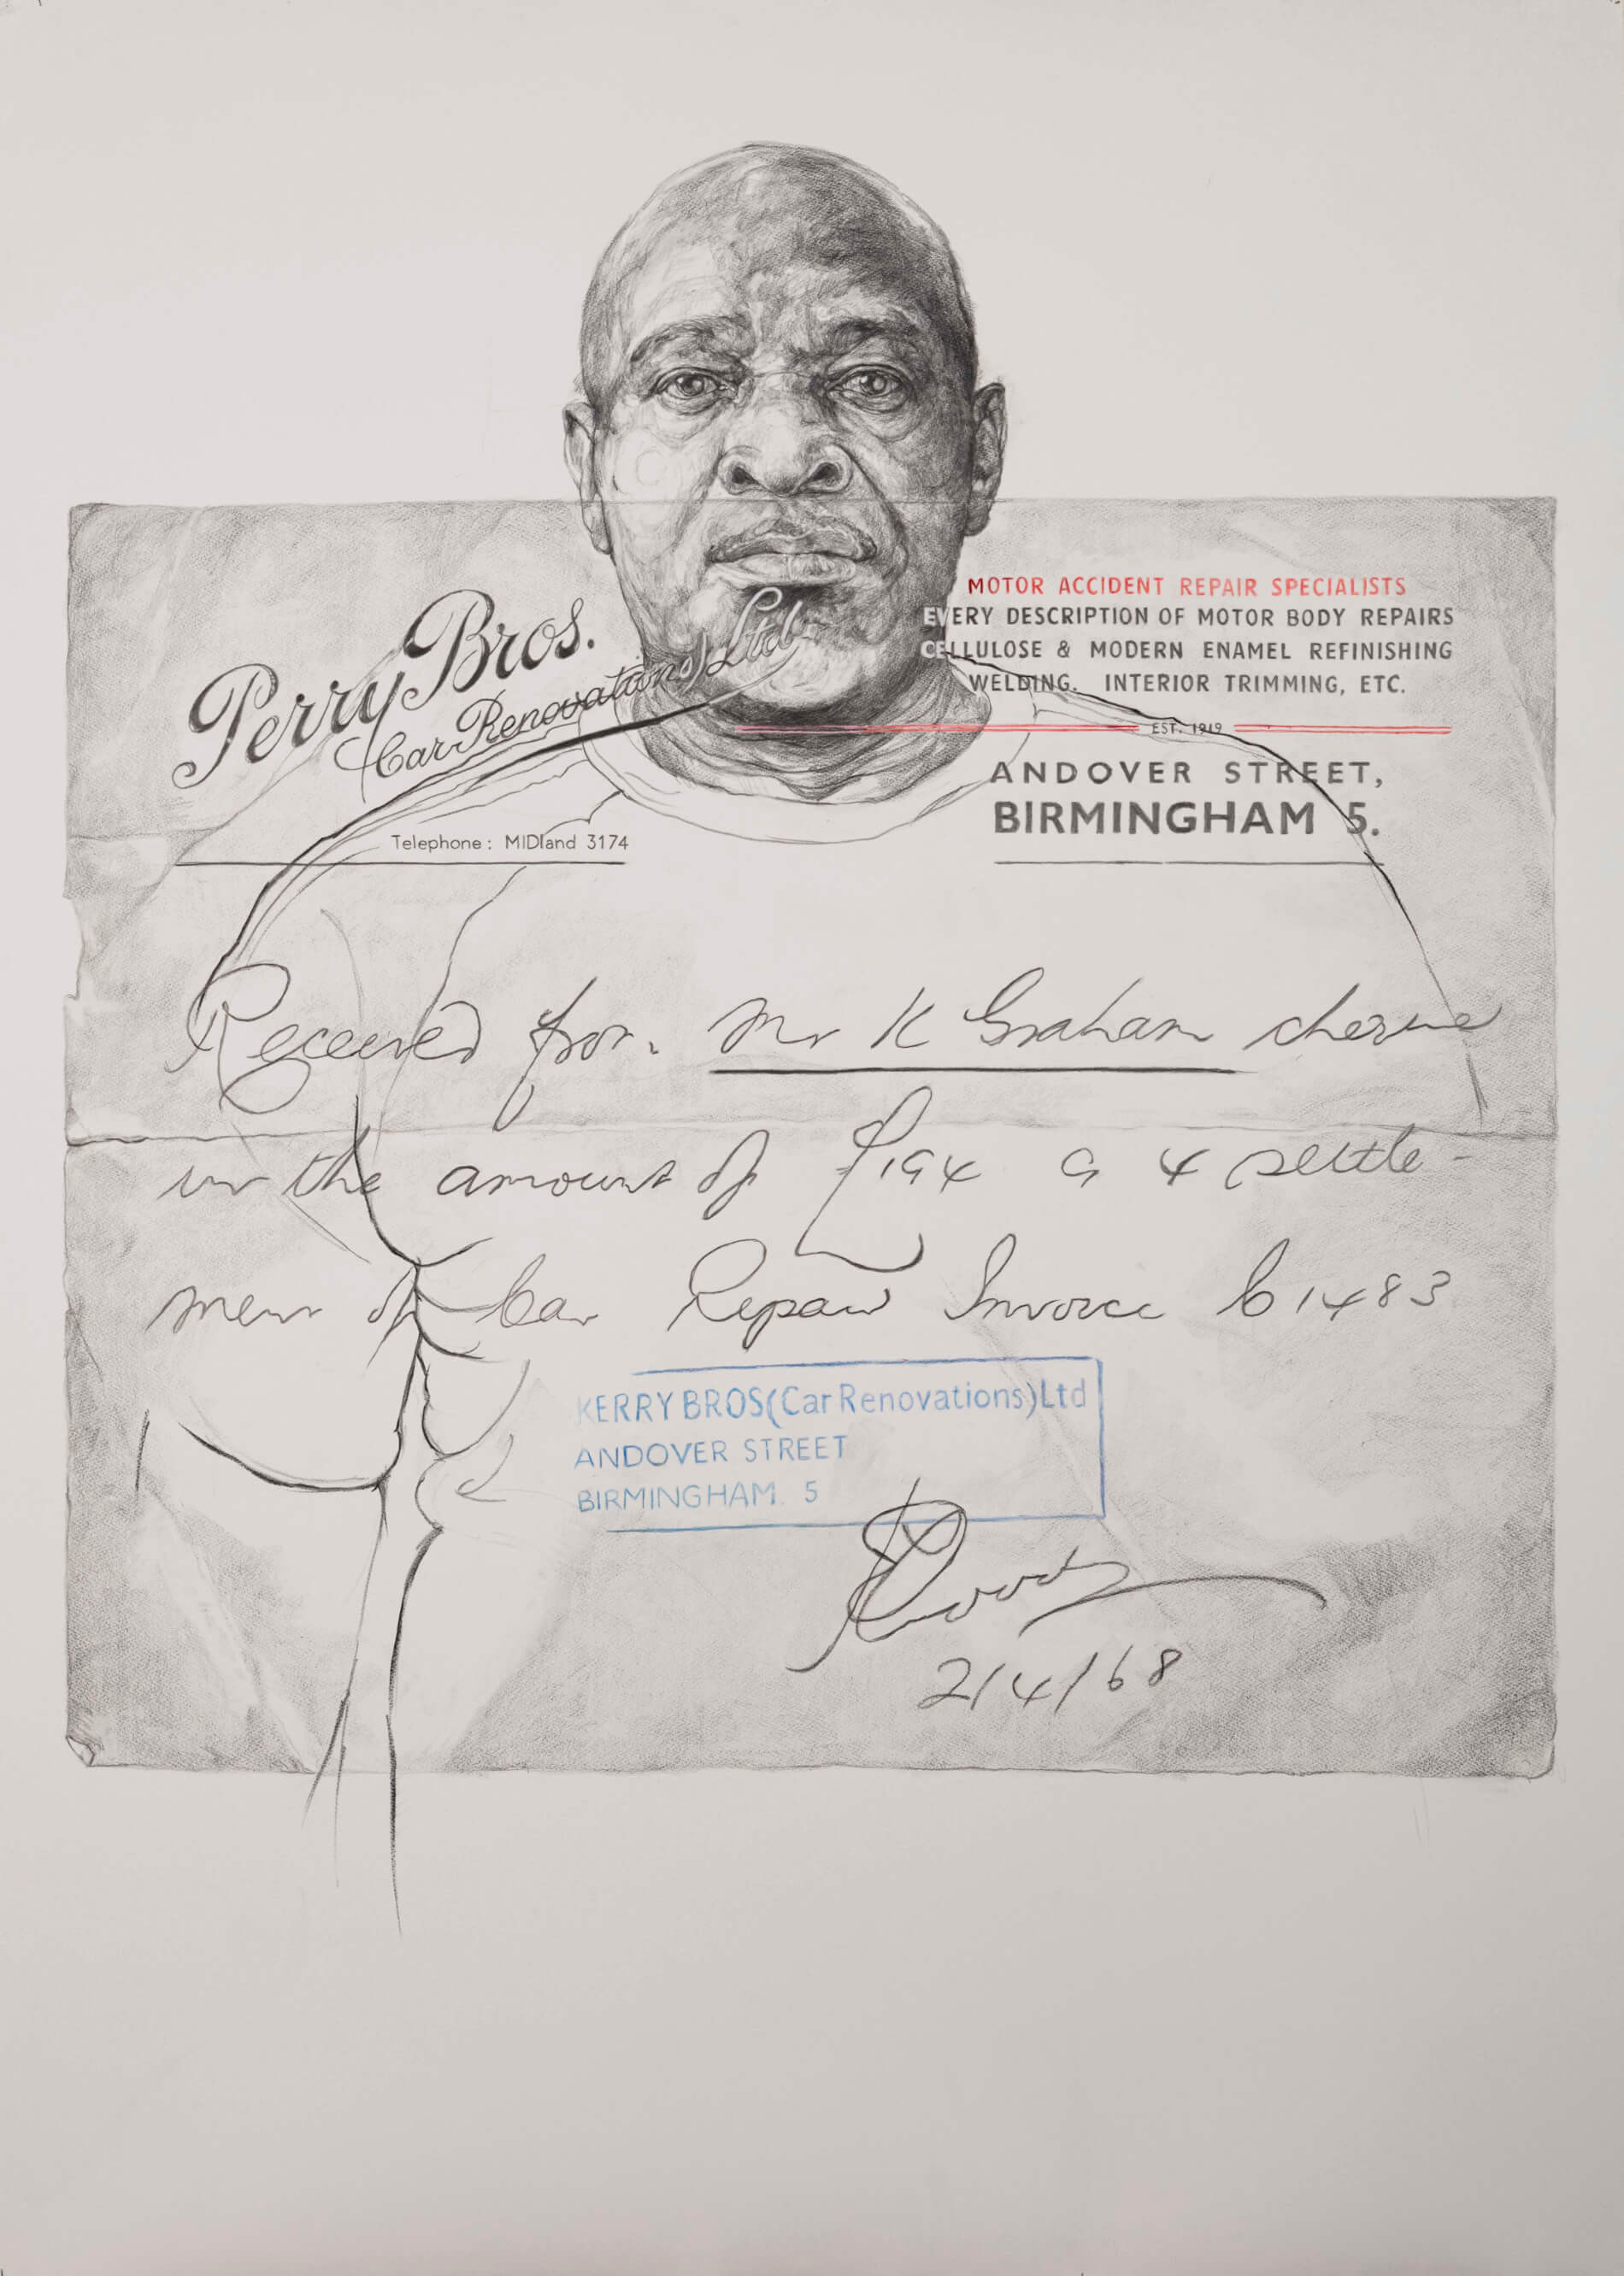 Perry Bros.
Car Renovations) Ltd
Telephone: MIDland 3174
MOTOR ACCIDENT REPAIR SPECIALISTS
EVERY DESCRIPTION OF MOTOR BODY REPAIRS
CELLULOSE & MODERN ENAMEL REFINISHING
WELDING. INTERIOR TRIMMING, ETC.
EST. 1919
ANDOVER STREET,
BIRMINGHAM 5.
Received from Mr K Graham cheque
in the amount of £194 9 4 settle-
ment of Car Repair Invoice C1483
KERRY BROS(Car Renovations)Ltd
ANDOVER STREET
BIRMINGHAM. 5
2/4/68